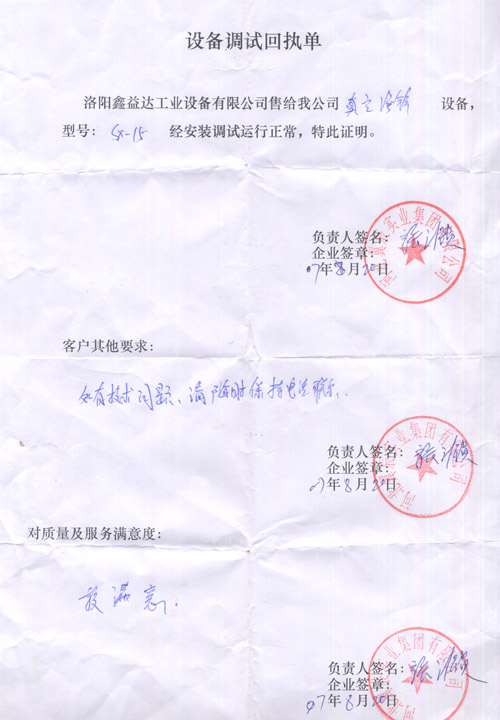 设备调试回执单
洛阳鑫益达工业设备有限公司售给我公司 真空 设备，
型号： SX-15 经安装调试运行正常，特此证明。
负责人签名：张
企业签章：
07年8月20日
客户其他要求：
如有技术问题、请随时保持电话联系.
负责人签名：张
企业签章：
07年8月20日
对质量及服务满意度：
较满意.
负责人签名：张
企业签章：
07年8月20日
实业集团有限公司